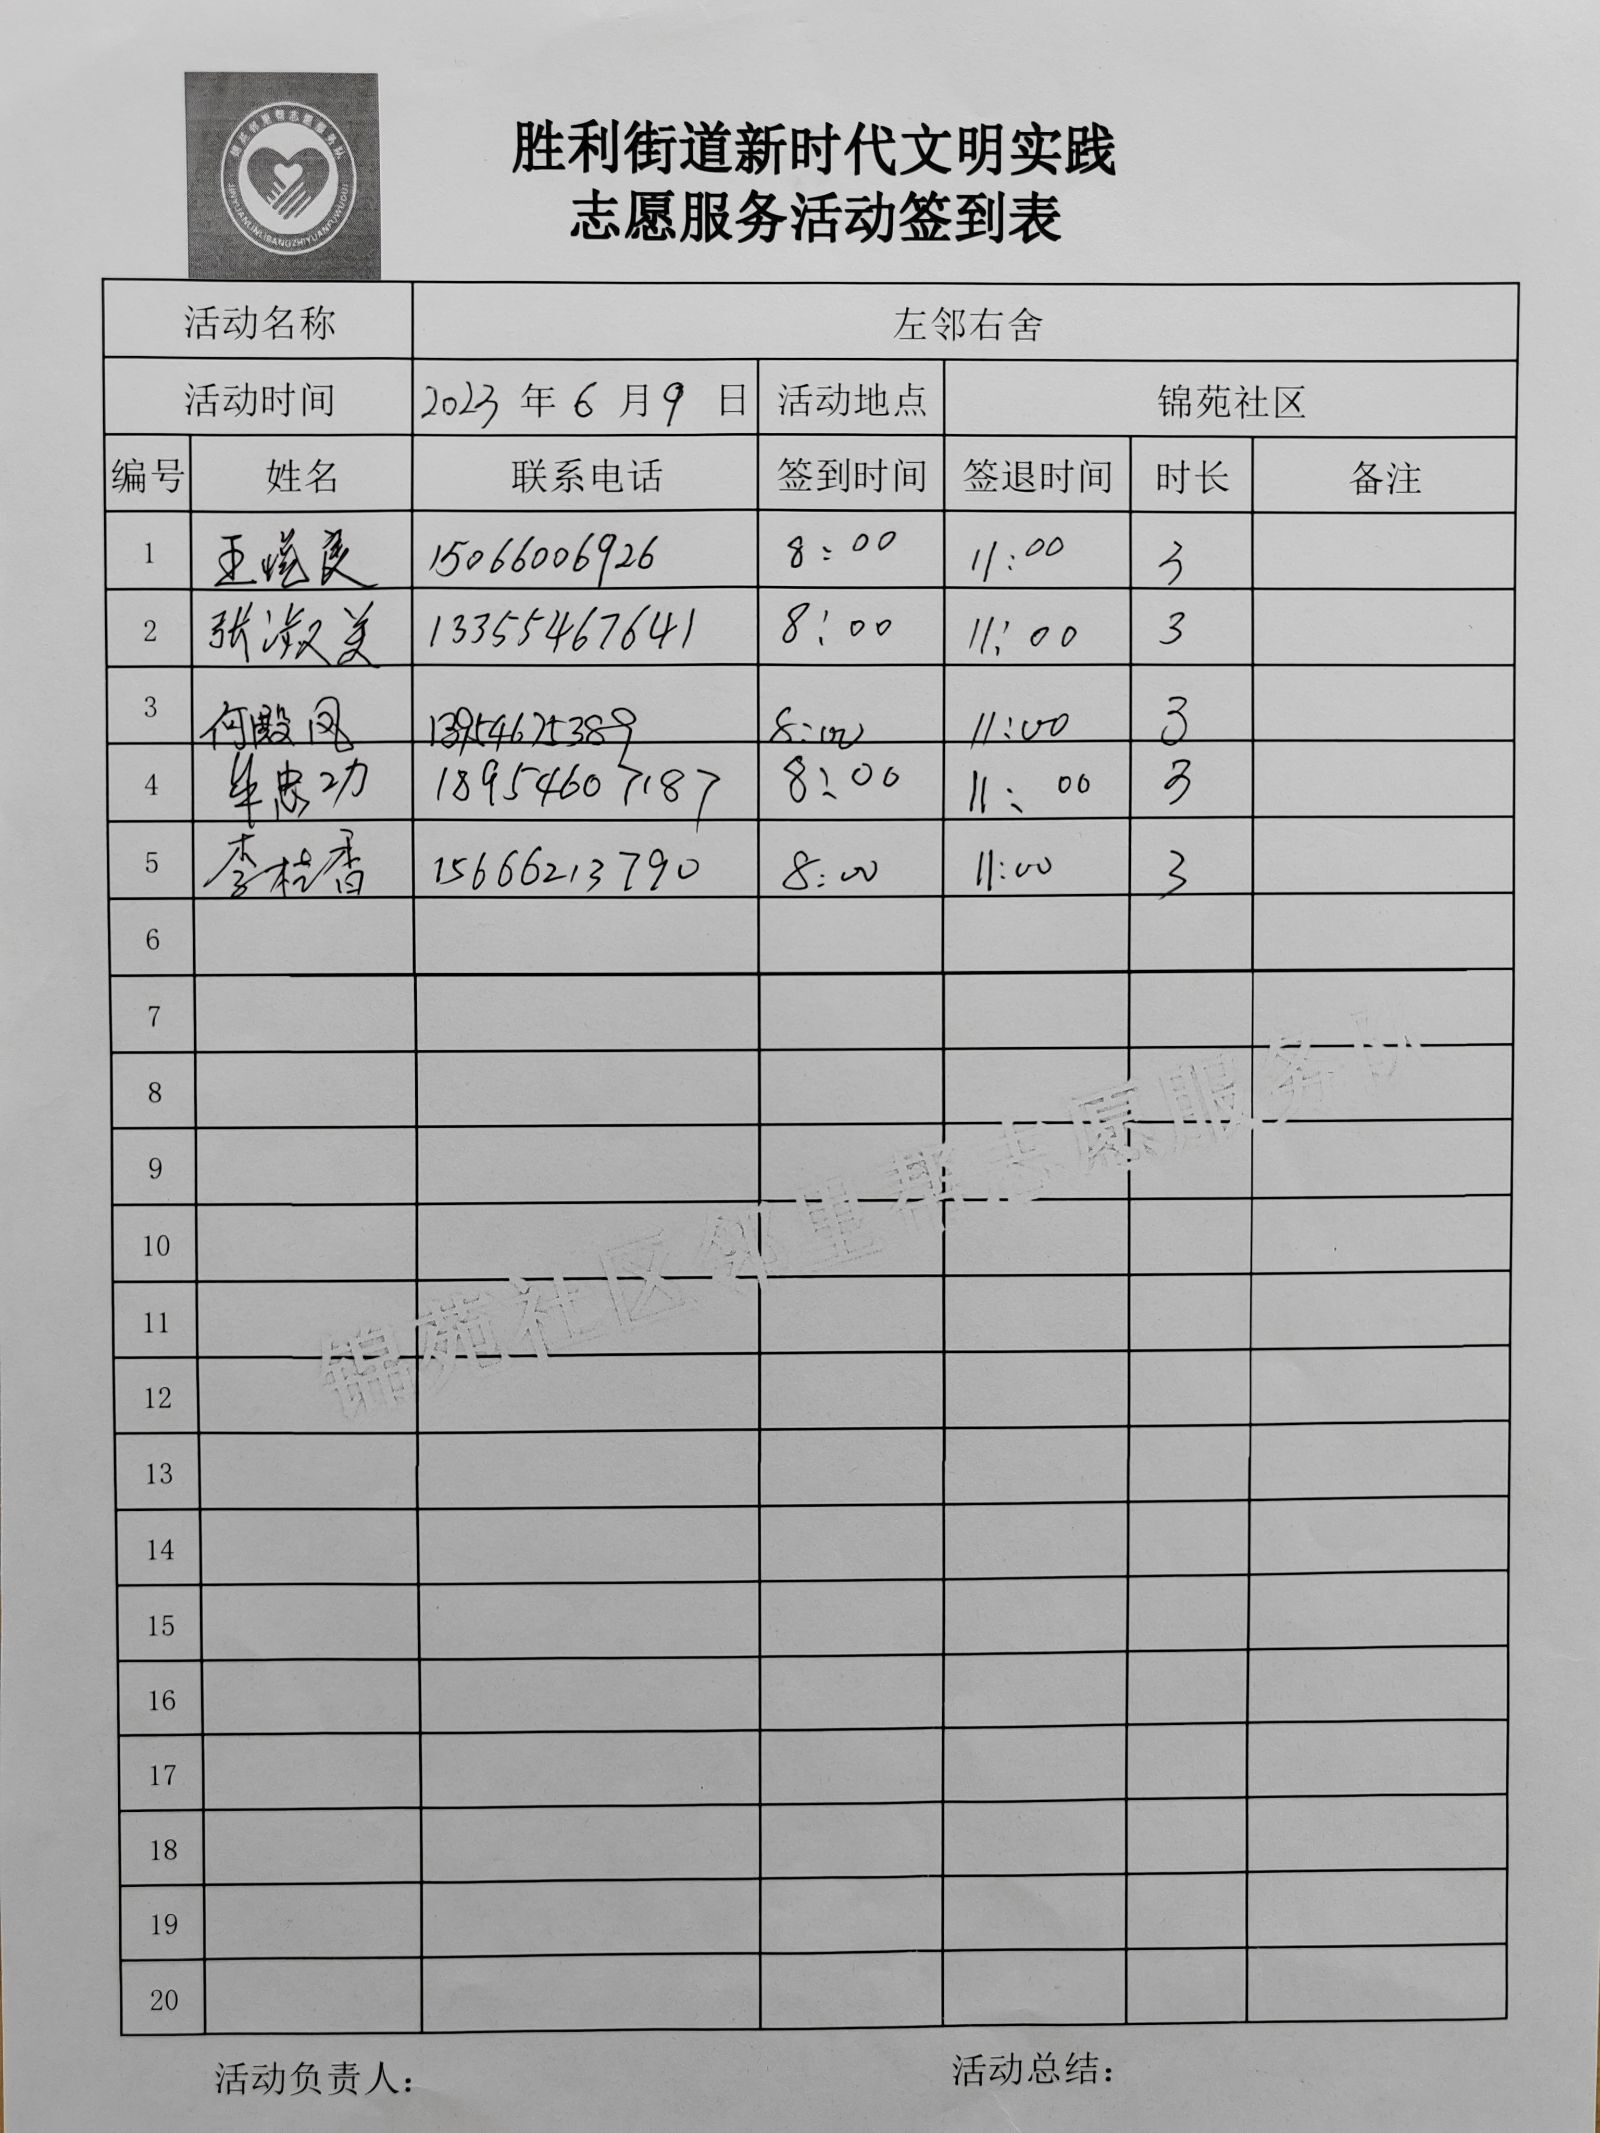 锦苑邻里帮志愿服务队
JINYUANLINLIBANGZHIYUANFUWUDUI
胜利街道新时代文明实践
志愿服务活动签到表
活动名称 左邻右舍
活动时间 2023 年 6 月 9 日 活动地点 锦苑社区
编号 姓名 联系电话 签到时间 签退时间 时长 备注
1 王 15066006926 8:00 11:00 3
2 张淑美 13355467641 8:00 11:00 3
3 何殿凤 13954675389 8:00 11:00 3
4 牟忠功 18954607187 8:00 11:00 3
5 李桂香 15666213790 8:00 11:00 3
6
7
8
9
10
11
12
13
14
15
16
17
18
19
20
锦苑社区邻里帮志愿服务队
活动负责人: 活动总结: